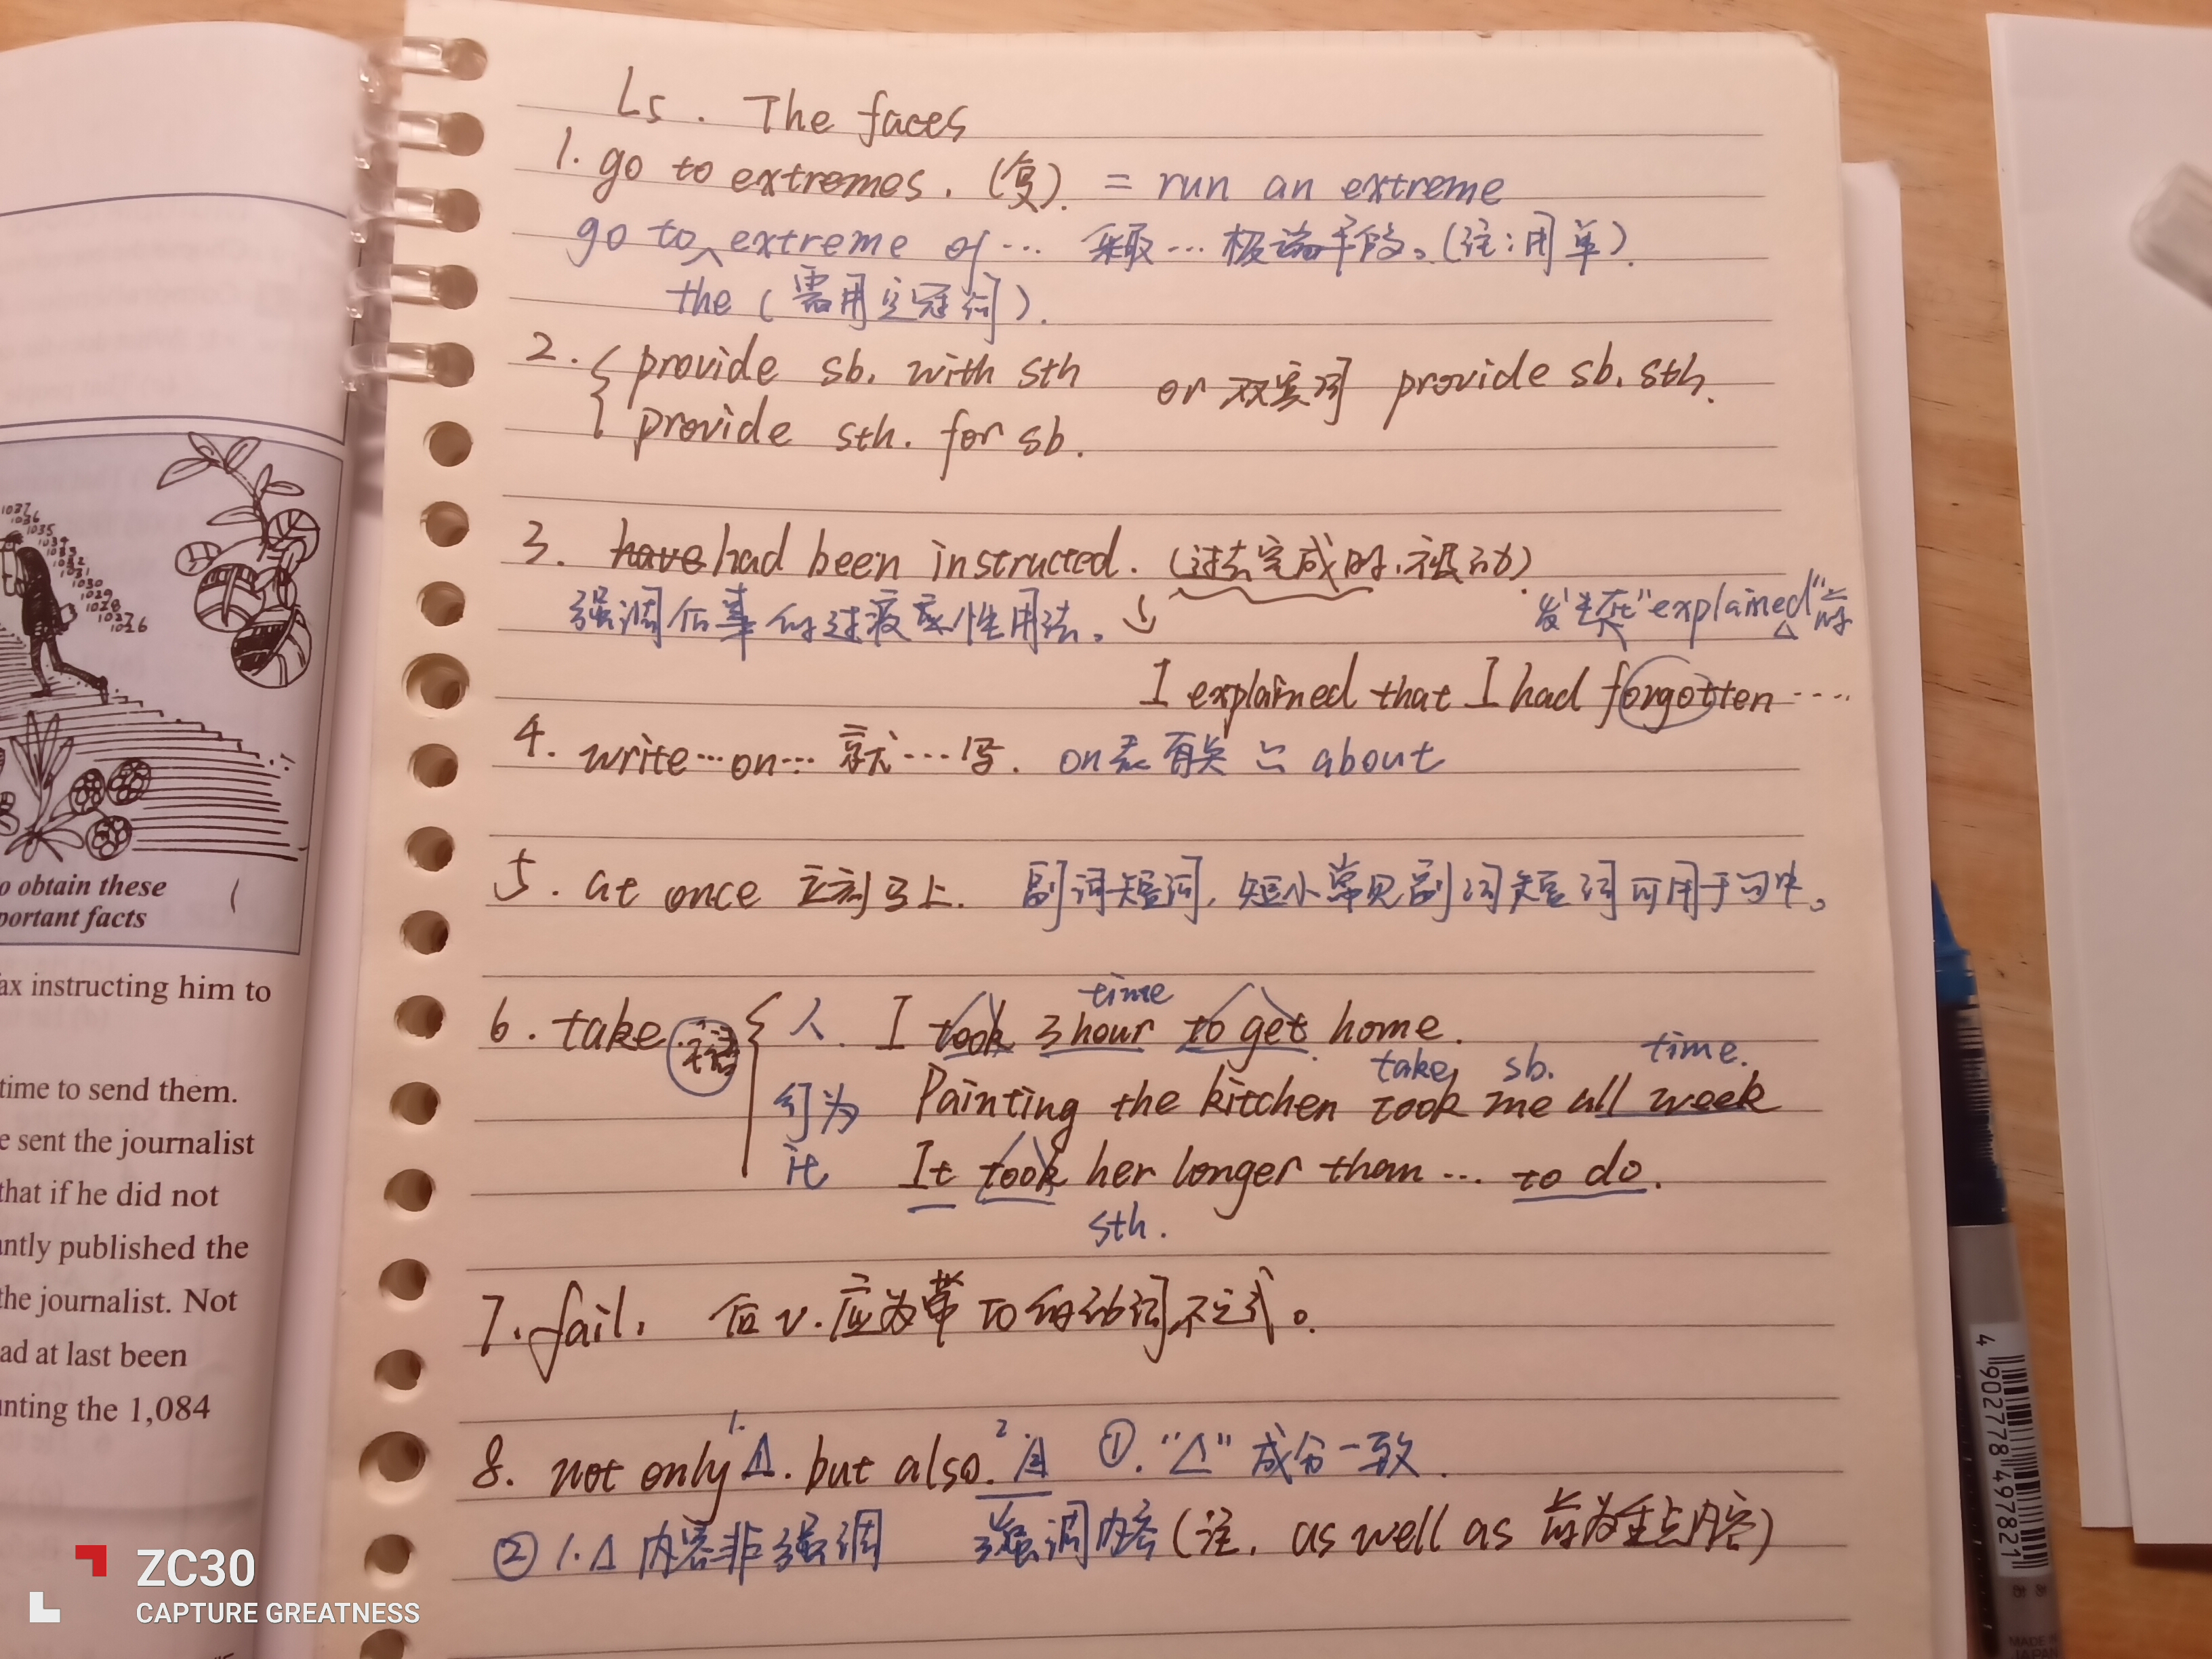 L5. The faces
1. go to extremes. (复). = run an extreme
go to extreme of … 采取…极端手段。(注:用单).
the (需用定冠词).
2. { provide sb. with sth or 双宾词 provide sb. sth.
provide sth. for sb.
3. have had been instructed. (过去完成时、被动)
强调后事的过
性用法。
发生在"explained"
I explained that I had forgotten ....
4. write…on… 就…写. on表有关 about
5. at once 立刻马上. 副词短词, 短小常见副词短词可用于句中。
time
6. take 主语 { 人. I took 3 hour to get home.
take sb. time.
行为 Painting the kitchen took me all week
it It took her longer than … to do.
sth.
7. fail. 后v.应为带to的动词不定式。
1. 2.
8. not only Δ. but also. Δ ①. "Δ" 成分一致.
② 1.Δ 内容非强调 强调内容(注. as well as 前为重点内容)
1037
1036
1035
1034
1033
1032
1031
1030
1029
1028
1026
o obtain these
portant facts
ax instructing him to
time to send them.
e sent the journalist
that if he did not
antly published the
the journalist. Not
ad at last been
nting the 1,084
4 902778 497821
MADE IN
JAPAN
ZC30
CAPTURE GREATNESS